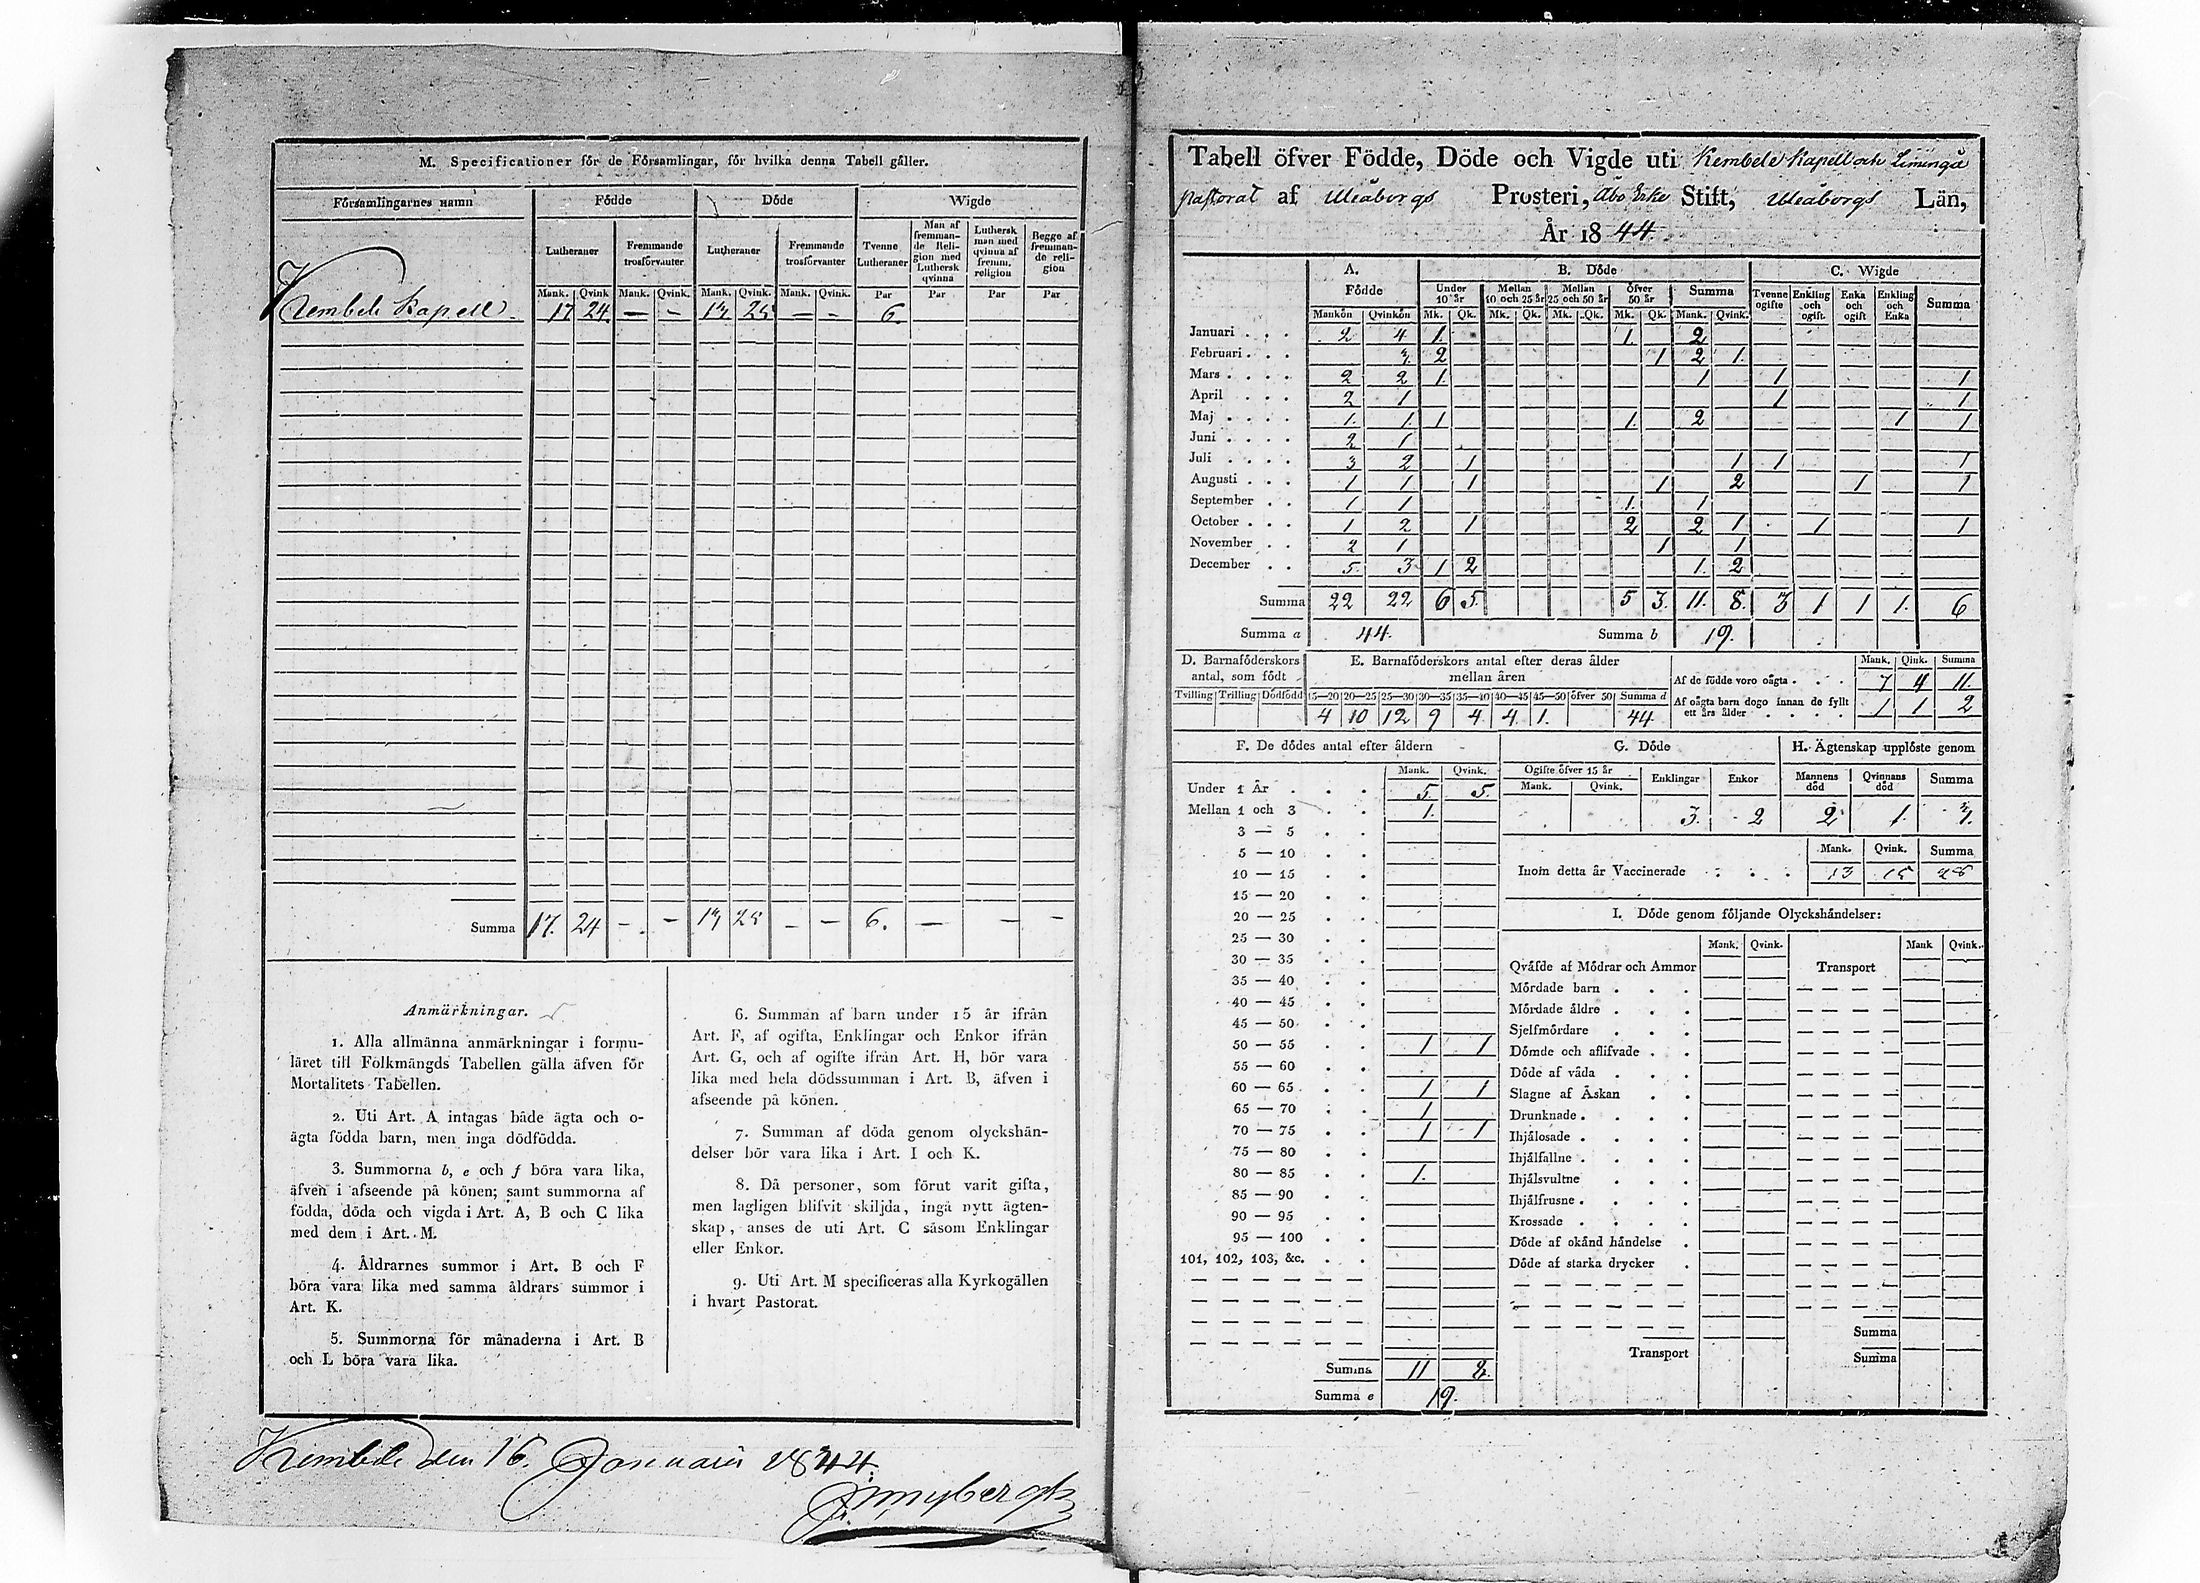 M. Specificationer för de Församlingar, för hvilka denna Tabell gäller.
Församlingarnes namn Födde Döde Wigde
Lutheraner Fremmande trosförvanter Lutheraner Fremmande trosförvanter Tvenne Lutheraner Man af fremman-de Reli-gion med Luthersk qvinna Luthersk man med qvinna af fremm. religion Begge af fremman-de reli-gion
Mank. Qvink. Mank. Qvink. Mank. Qvink. Mank. Qvink. Par Par Par Par
Kembele Kapell. 17 24. — — 13 25 — — 6.
Summa 17. 24 — — 13 25 — — 6. — — —
Anmärkningar.
1. Alla allmänna anmärkningar i formu-
läret till Folkmängds Tabellen gälla äfven för
Mortalitets Tabellen.
2. Uti Art. A intagas både ägta och o-
ägta födda barn, men inga dödfödda.
3. Summorna b, e och f böra vara lika,
äfven i afseende på könen; samt summorna af
födda, döda och vigda i Art. A, B och C lika
med dem i Art. M.
4. Åldrarnes summor i Art. B och F
böra vara lika med samma åldrars summor i
Art. K.
5. Summorna för månaderna i Art. B
och L böra vara lika.
6. Summan af barn under 15 år ifrån
Art. F, af ogifta, Enklingar och Enkor ifrån
Art. G, och af ogifte ifrån Art. H, bör vara
lika med hela dödssumman i Art. B, äfven i
afseende på könen.
7. Summan af döda genom olyckshän-
delser bör vara lika i Art. I och K.
8. Då personer, som förut varit gifta,
men lagligen blifvit skiljda, ingå nytt ägten-
skap, anses de uti Art. C såsom Enklingar
eller Enkor.
9. Uti Art. M specificeras alla Kyrkogällen
i hvart Pastorat.
Kembele den 16 Januarii 1844.
Tabell öfver Födde, Döde och Vigde uti Kembele Kapell och Limingå
pastorat af Uleåborgs Prosteri, Åbo Erke Stift, Uleåborgs Län,
År 1844.
A. B. Döde C. Wigde
Födde Under 10 år Mellan 10 och 25 år Mellan 25 och 50 år Öfver 50 år Summa Tvenne ogifte Enkling och ogift. Enka och ogift Enkling och Enka Summa
Mankön Qvinkön Mk. Qk. Mk. Qk. Mk. Qk. Mk. Qk. Mank. Qvink.
Januari . . . 2 4 1. 1. 2
Februari . . . 3 2 1 2 1.
Mars . . . . 2 2 1. 1 1 1
April . . . 2 1 1 1
Maj . . . . 1. 1. 1 1. 2 1 1
Juni . . . . 2 1
Juli . . . . 3 2 1 1 1 1
Augusti . . . 1 1 1 1 2 1 1
September . . 1 1 1. 1
October . . . 1 2 1 2 2 1 1 1
November . . 2 1 1 1
December . . 5 3 1 2 1. 2
Summa 22 22 6 5. 5 3. 11. 8. 3 1 1 1. 6
Summa a 44. Summa b 19.
D. Barnaföderskors antal, som födt E. Barnaföderskors antal efter deras ålder mellan åren Mank. Qink. Summa
Tvilling Trilling Dödfödd 15—20 20—25 25—30 30—35 35—40 40—45 45—50 öfver 50 Summa d
4 10 12 9 4 4 1. 44
Af de födde voro oägta . . . 7 4 11.
Af oägta barn dogo innan de fyllt ett års ålder . . . . 1 1 2
F. De dödes antal efter åldern
Mank. Qvink.
Under 1 År . . . 5. 5.
Mellan 1 och 3 . . 1.
3 — 5 . .
5 — 10 . .
10 — 15 . .
15 — 20 . .
20 — 25 . .
25 — 30 . .
30 — 35 . .
35 — 40 . .
40 — 45 . .
45 — 50 . .
50 — 55 . . 1 1
55 — 60 . .
60 — 65 . . 1 1
65 — 70 . . 1
70 — 75 . . 1 1
75 — 80 . .
80 — 85 . . 1.
85 — 90 . .
90 — 95 . .
95 — 100 . .
101, 102, 103, &c. . .
Summa 11 8.
Summa e 19.
G. Döde
Ogifte öfver 15 år Enklingar Enkor
Mank. Qvink.
3. 2
H. Ägtenskap upplöste genom
Mannens död Qvinnans död Summa
2 1. 3.
Mank. Qvink. Summa
Inom detta år Vaccinerade . . . 13 15 28
I. Döde genom följande Olyckshändelser:
Mank. Qvink. Mank Qvink.
Qväfde af Mödrar och Ammor Transport
Mördade barn . . .
Mördade äldre . . .
Sjelfmördare . . .
Dömde och aflifvade . .
Döde af våda . . .
Slagne af Åskan . .
Drunknade . . . .
Ihjälosade . . . .
Ihjälfallne . . . .
Ihjälsvultne . . .
Ihjälfrusne . . . .
Krossade . . . .
Döde af okänd händelse .
Döde af starka drycker .
Summa
Transport
Summa